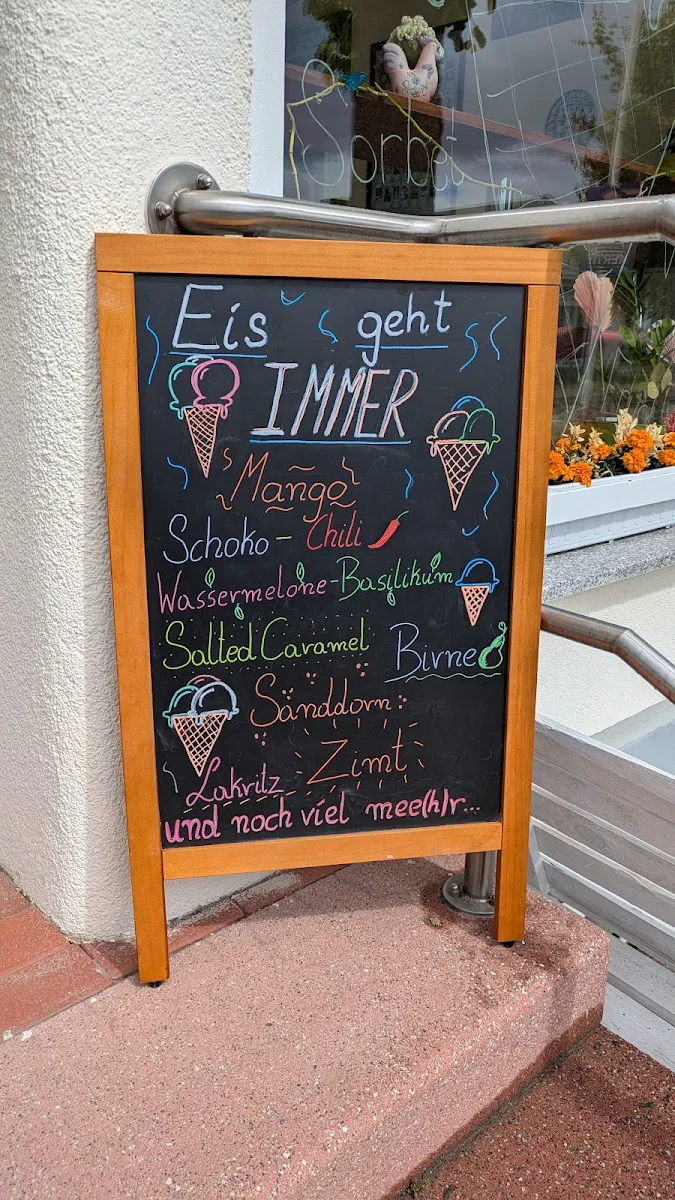 Sorbet
Eis geht
IMMER
Mango
Schoko-Chili
Wassermelone-Basilikum
Salted Caramel
Birne
Sanddorn
Zimt
Lakritz
und noch viel mee(h)r...